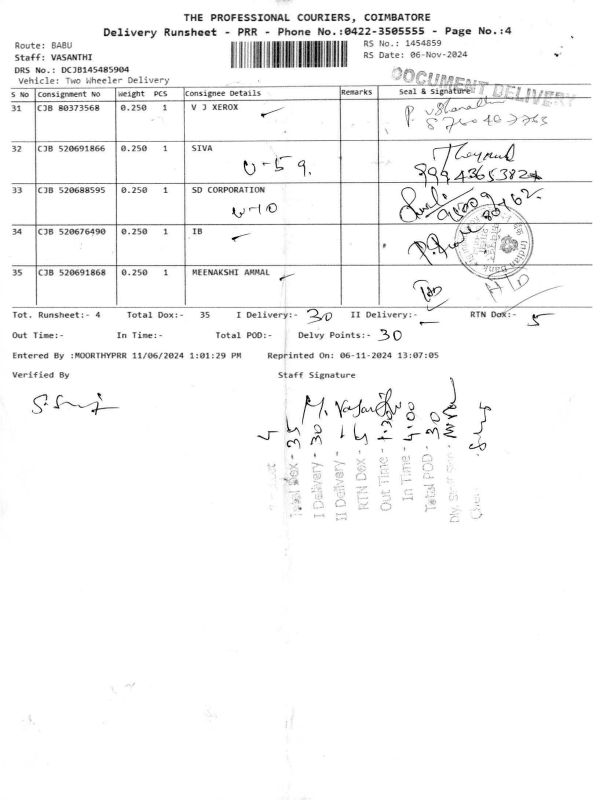 THE PROFESSIONAL COURIERS, COIMBATORE
Delivery Runsheet - PRR - Phone No.:0422-3505555 - Page No.:4
Route: BABU RS No.: 1454859
Staff: VASANTHI RS Date: 06-Nov-2024
DRS No.: DCJB145485904
Vehicle: Two Wheeler Delivery
DOCUMENT DELIVERY
S No Consignment No Weight PCS Consignee Details Remarks Seal & Signature
31 CJB 80373568 0.250 1 V J XEROX
32 CJB 520691866 0.250 1 SIVA
U-59.
33 CJB 520688595 0.250 1 SD CORPORATION
U-10
34 CJB 520676490 0.250 1 IB
Indian Bank
35 CJB 520691868 0.250 1 MEENAKSHI AMMAL
Tot. Runsheet:- 4 Total Dox:- 35 I Delivery:- 30 II Delivery:- - RTN Dox:- 5
Out Time:- In Time:- Total POD:- Delvy Points:- 30
Entered By :MOORTHYPRR 11/06/2024 1:01:29 PM Reprinted On: 06-11-2024 13:07:05
Verified By Staff Signature
4
Total Dox - 35
I Delivery - 30
II Delivery - -
RTN Dox - 5
Out Time - 1.30
In Time - 4:00
Total POD - 30